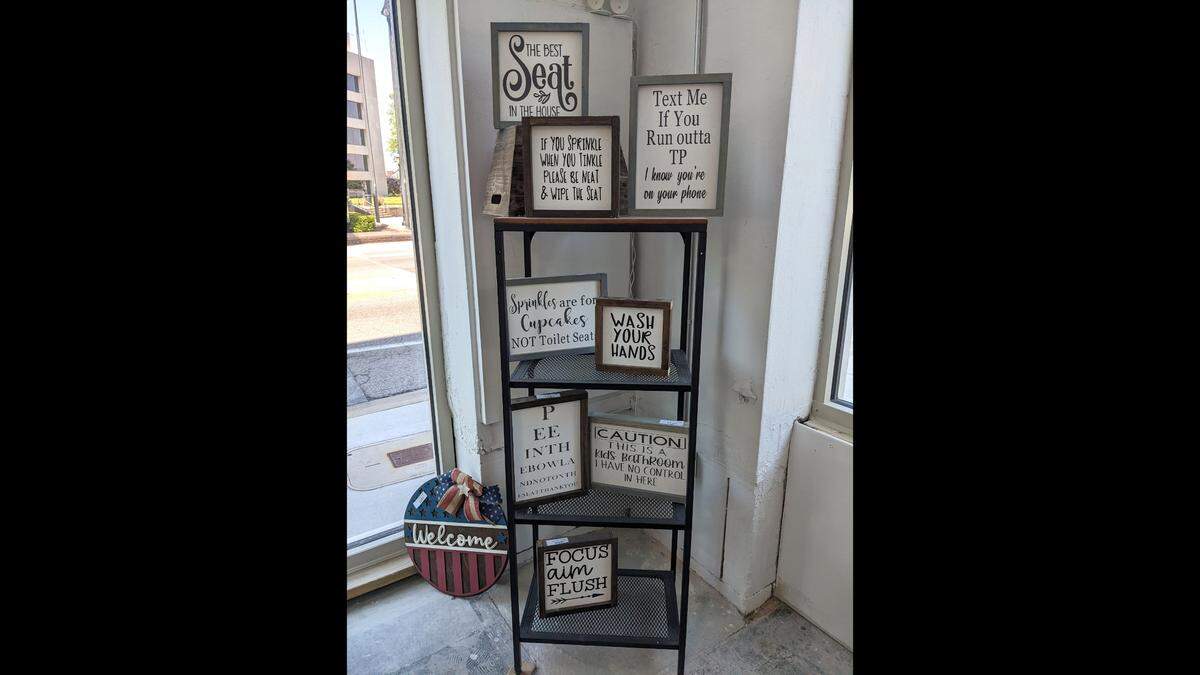 THE BEST
Seat
IN THE HOUSE
Text Me
If You
Run outta
TP
I know you're
on your phone
IF YOU SPRINKLE
WHEN YOU TINKLE
PLEASE BE NEAT
& WIPE THE SEAT
Sprinkles are for
Cupcakes
NOT Toilet Seat
WASH
YOUR
HANDS
P
EE
INTH
EBOWLA
NDNOTONTH
ESEATTHANKYOU
CAUTION
THIS IS A
Kids BATHROOM
I HAVE NO CONTROL
IN HERE
Welcome
FOCUS
aim
FLUSH